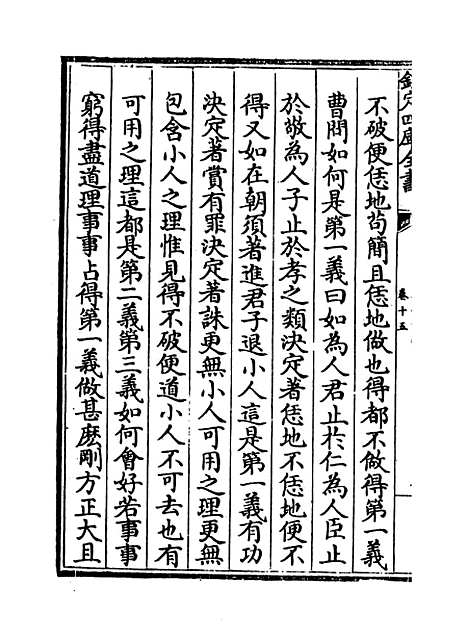 欽定四庫全書
卷十五
不破便恁地苟簡且恁地做也得都不做得第一義
曹問如何是第一義曰如為人君止於仁為人臣止
於敬為人子止於孝之類決定著恁地不恁地便不
得又如在朝須著進君子退小人這是第一義有功
決定著賞有罪決定著誅更無小人可用之理更無
包含小人之理惟見得不破便道小人不可去也有
可用之理這都是第二義第三義如何會好若事事
窮得盡道理事事占得第一義做甚麽剛方正大且